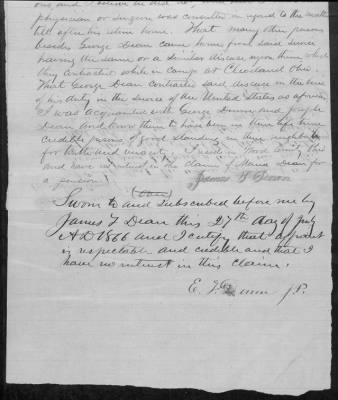 physician or Surgeon was consulted in regard to the matter
after his return home. That many other persons
besides George Dean came home from said service
having the same or a similar disease upon them which
they contracted while in camp at Cleveland Ohio.
That George Dean contracted said disease in the line
of his duty in the service of the United States as aforesaid
I was acquainted with George and Joseph
Dean and know them to have been in their life time
credible persons of good standing in their neighborhood
for truth and veracity. I reside in Wood County, Ohio
and have no interest in the claim of Dean for
a pension.
James F Dean
Sworn to and Subscribed before me by
James F Dean this 27th day of July
AD 1866 and I certify that affiant
is respectable and credible and that I
have no interest in this claim.
E. J.P.